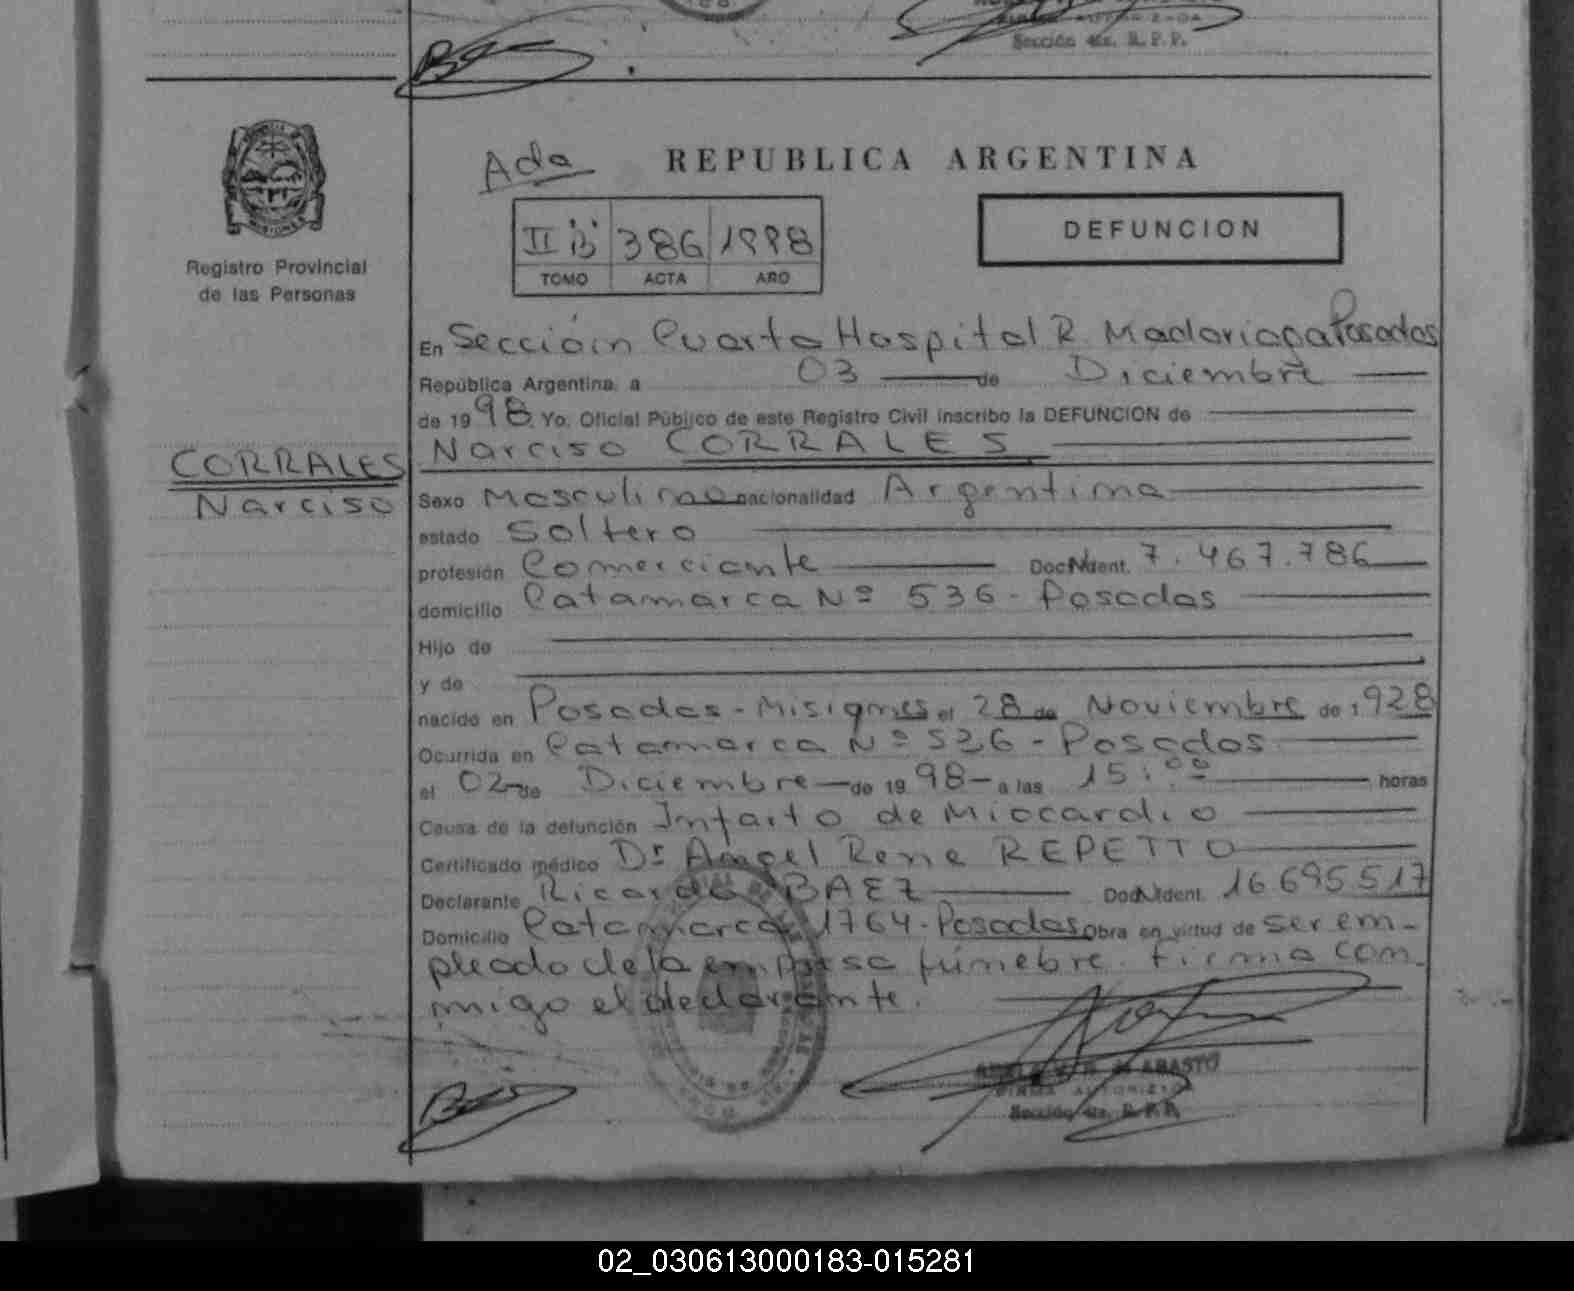 Sección 4ta. R. P. P.
REPUBLICA ARGENTINA
II "B" 386 1998
TOMO ACTA AÑO
DEFUNCION
Registro Provincial
de las Personas
En Seccióin Cuarta Hospital R. Madariaga Posadas
República Argentina, a 03 de Diciembre
de 1998. Yo, Oficial Público de este Registro Civil inscribo la DEFUNCION de
Narciso CORRALES
CORRALES
Narciso
Sexo Masculino nacionalidad Argentina
estado Soltero
profesión Comerciante Doc. Ident. 7.467.786
domicilio Catamarca Nº 536 - Posadas
Hijo de
y de
nacido en Posadas - Misiones el 28 de Noviembre de 1928
Ocurrida en Catamarca Nº 536 - Posadas
el 02 de Diciembre de 1998 a las 15:00 horas
Causa de la defunción Infarto de Miocardio
Certificado médico Dr Angel Rene REPETTO
Declarante Ricardo BAEZ Doc. Ident. 16.695.517
Domicilio Catamarca 1764 - Posadas Obra en virtud de ser em-
pleado de la empresa fúnebre. firma con-
migo el declarante.
FIRMA AUTORIZADA
Sección 4ta. R. P. P.
02_030613000183-015281